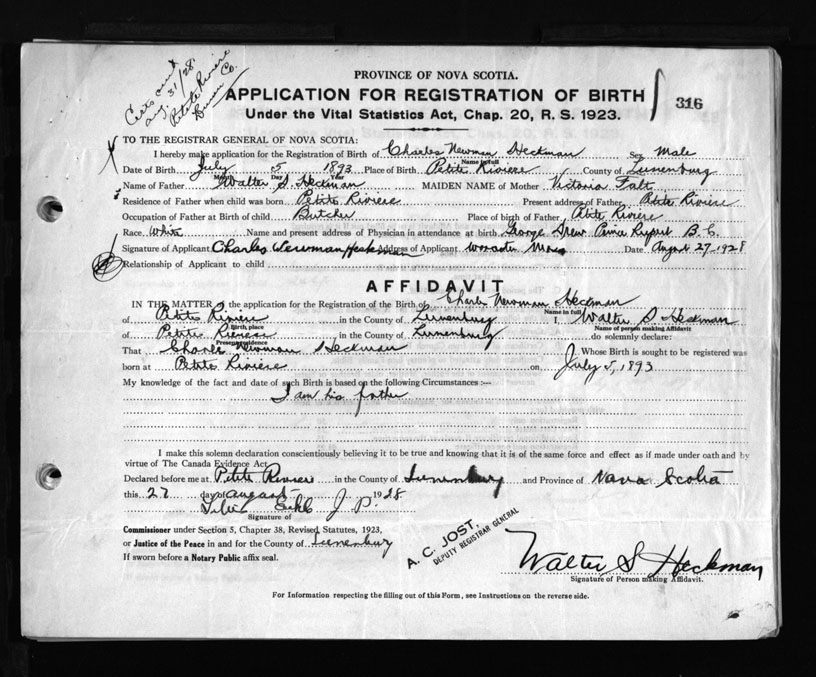 Certs sent
Aug. 31/28
Petite Riviere
Lunen Co.
PROVINCE OF NOVA SCOTIA.
APPLICATION FOR REGISTRATION OF BIRTH
316
Under the Vital Statistics Act, Chap. 20, R. S. 1923.
TO THE REGISTRAR GENERAL OF NOVA SCOTIA:
I hereby make application for the Registration of Birth of Charles Newman Heckman Sex Male
Name in full
Date of Birth July 5 1893 Place of Birth Petite Riviere County of Lunenburg
Month Day Year
Name of Father Walter S. Heckman MAIDEN NAME of Mother Victoria Falt
Residence of Father when child was born Petite Riviere Present address of Father Petite Riviere
Occupation of Father at Birth of child Butcher Place of birth of Father Petite Riviere
Race White Name and present address of Physician in attendance at birth George Drew Prince Rupert B.C.
Signature of Applicant Charles Newman Heckman Address of Applicant Worcester Mass Date August 27, 1928
Relationship of Applicant to child
AFFIDAVIT
IN THE MATTER of the application for the Registration of the Birth of Charles Newman Heckman
Name in full
of Petite Riviere in the County of Lunenburg I, Walter S. Heckman
Birth place Name of person making Affidavit
of Petite Riviere in the County of Lunenburg do solemnly declare:
Present residence
That Charles Newman Heckman Whose Birth is sought to be registered was
born at Petite Riviere on July 5, 1893
My knowledge of the fact and date of such Birth is based on the following Circumstances :—
I am his father
I make this solemn declaration conscientiously believing it to be true and knowing that it is of the same force and effect as if made under oath and by
virtue of The Canada Evidence Act.
Declared before me at Petite Riviere in the County of Lunenburg and Province of Nova Scotia
this 27 day of August 1928
J. P.
Signature of
Commissioner under Section 5, Chapter 38, Revised Statutes, 1923,
or Justice of the Peace in and for the County of Lunenburg
If sworn before a Notary Public affix seal.
A. C. JOST,
DEPUTY REGISTRAR GENERAL
Walter S Heckman
Signature of Person making Affidavit.
For Information respecting the filling out of this Form, see Instructions on the reverse side.